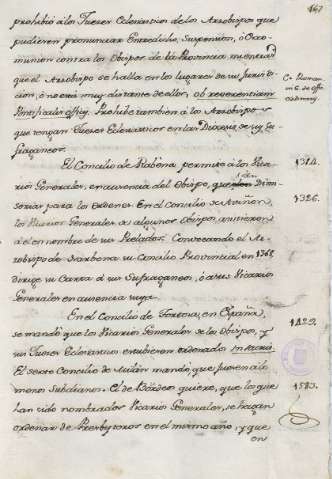 167
prohibió á los Jueces Eclesiasticos de los Arzobispos que
pudiesen pronunciar Entredicho, Suspension, ó Exco-
munion contra los Obispos de la Provincia mientras
que el Arzobispo se halla en los lugares de su Jurisdi-
cion, ó no está muy distante de ellos, ob reverentiam
Pontificalis officij. Prohibe tambien á los Arzobispos
que tengan Jueces Eclesiasticos en las Diocesis de sus Su-
fraganeos.
El Concilio de Rabena permite á los Vica- 1314.
rios Generales, en ausencia del Obispo, que den Dimi-
sorias para los Ordenes. En el Concilio de Aviñon 1326.
los Vicarios Generales de algunos Obispos, asistieron
á el en nombre de sus Prelados. Convocando el Ar-
zobispo de Narbona su Concilio Provincial en 1368
dirige su Carta á sus Sufraganeos, ó á sus Vicarios
Generales en ausencia suya.
En el Concilio de Tortosa, en España, 1429.
se mandó que los Vicarios Generales de los Obispos, y
sus Jueces Eclesiasticos estubiesen ordenados in sacris.
El sexto Concilio de Milán mandó, que fuesen á lo
menos Subdiaconos. El de Bordeos quiere, que los que 1583.
han sido nombrados Vicarios Generales, se hagan
ordenar de Presbyteros en el mismo año, y que
en